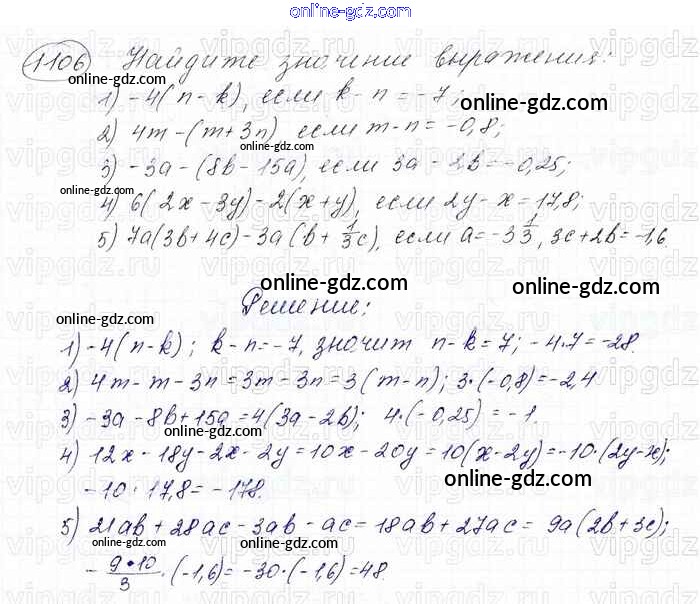 online-gdz.com
1106 Найдите значение выражения:
online-gdz.com
1) -4(n-k), если k-n=-7;
online-gdz.com
2) 4m-(m+3n), если m-n=-0,8;
online-gdz.com
3) -3a-(8b-15a), если 3a-2b=-0,25;
online-gdz.com
4) 6(2x-3y)-2(x+y), если 2y-x=17,8;
5) 7a(3b+4c)-3a(b+1/3c), если a=-3 1/3, 3c+2b=-1,6.
online-gdz.com
online-gdz.com
Решение:
online-gdz.com
1) -4(n-k); k-n=-7, значит n-k=7; -4·7=-28.
online-gdz.com
2) 4m-m-3n=3m-3n=3(m-n); 3·(-0,8)=-2,4
3) -3a-8b+15a=4(3a-2b); 4·(-0,25)=-1.
online-gdz.com
online-gdz.com
4) 12x-18y-2x-2y=10x-20y=10(x-2y)=-10·(2y-x);
online-gdz.com
-10·17,8=-178.
online-gdz.com
5) 21ab+28ac-3ab-ac=18ab+27ac=9a(2b+3c);
-9·10/3·(-1,6)=-30·(-1,6)=48.
online-gdz.com
online-gdz.com